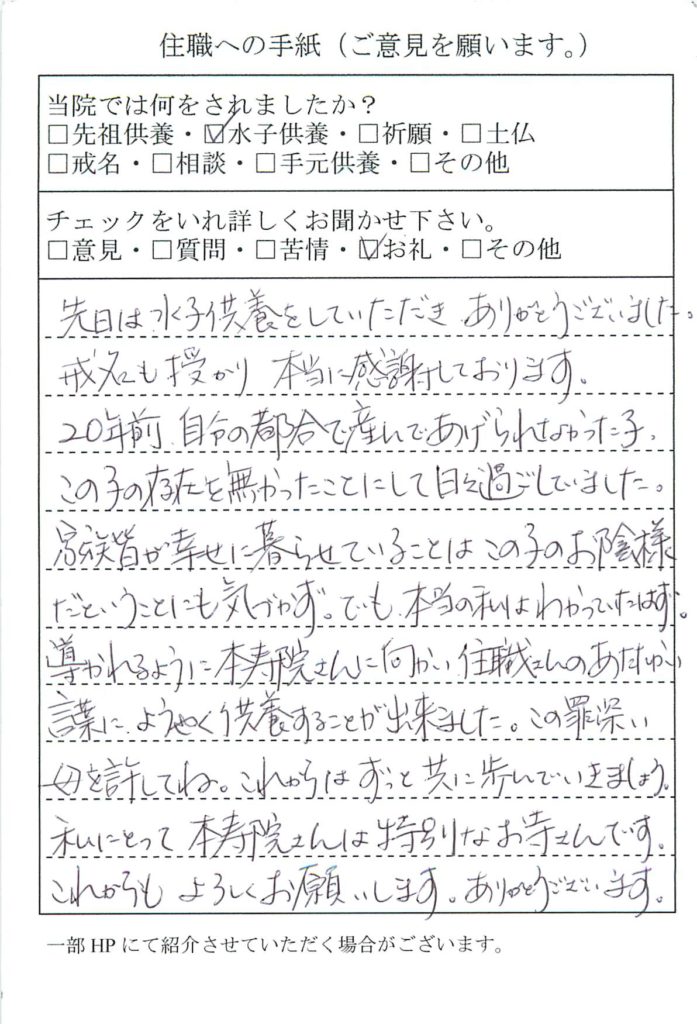 住職への手紙（ご意見を願います。）
当院では何をされましたか？
□先祖供養・☑水子供養・□祈願・□土仏
□戒名・□相談・□手元供養・□その他
チェックをいれ詳しくお聞かせ下さい。
□意見・□質問・□苦情・☑お礼・□その他
先日は水子供養をしていただき ありがとうございました。
戒名も授かり 本当に感謝しております。
20年前、自分の都合で産んであげられなかった子。
この子の存在を無かったことにして日々過ごしていました。
家族皆が幸せに暮らせていることは この子のお陰様
だということにも気づかず。でも、本当の私はわかっていたはず。
導かれるように本寿院さんに向かい 住職さんのあたたかい
言葉に、ようやく供養することが出来ました。この罪深い
母を許してね。これからは ずっと共に歩んでいきましょう。
私にとって 本寿院さんは特別なお寺さんです。
これからも よろしくお願いします。ありがとうございます。
一部HPにて紹介させていただく場合がございます。